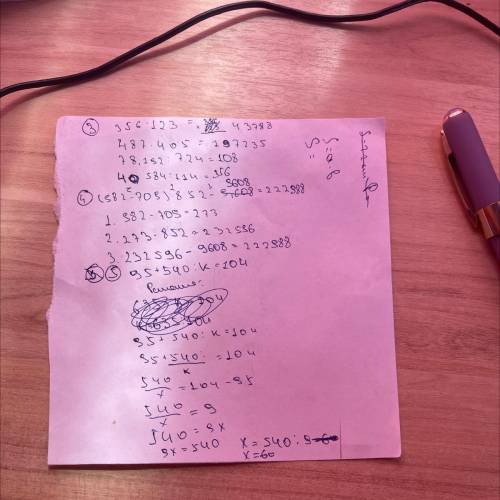 3 356·123 = 43788
487·405 = 197235
78.192:724=108
40 584:114=356
4 (982-709)·852-9608=222988
1. 982-709=273
2. 273·852=232596
3. 232596-9608=222988
5 95+540:к=104
Решение:
95+540:к=104
95+540:к=104
540/x=104-95
540/x=9
540=9x
9x=540 x=540:9
x=60